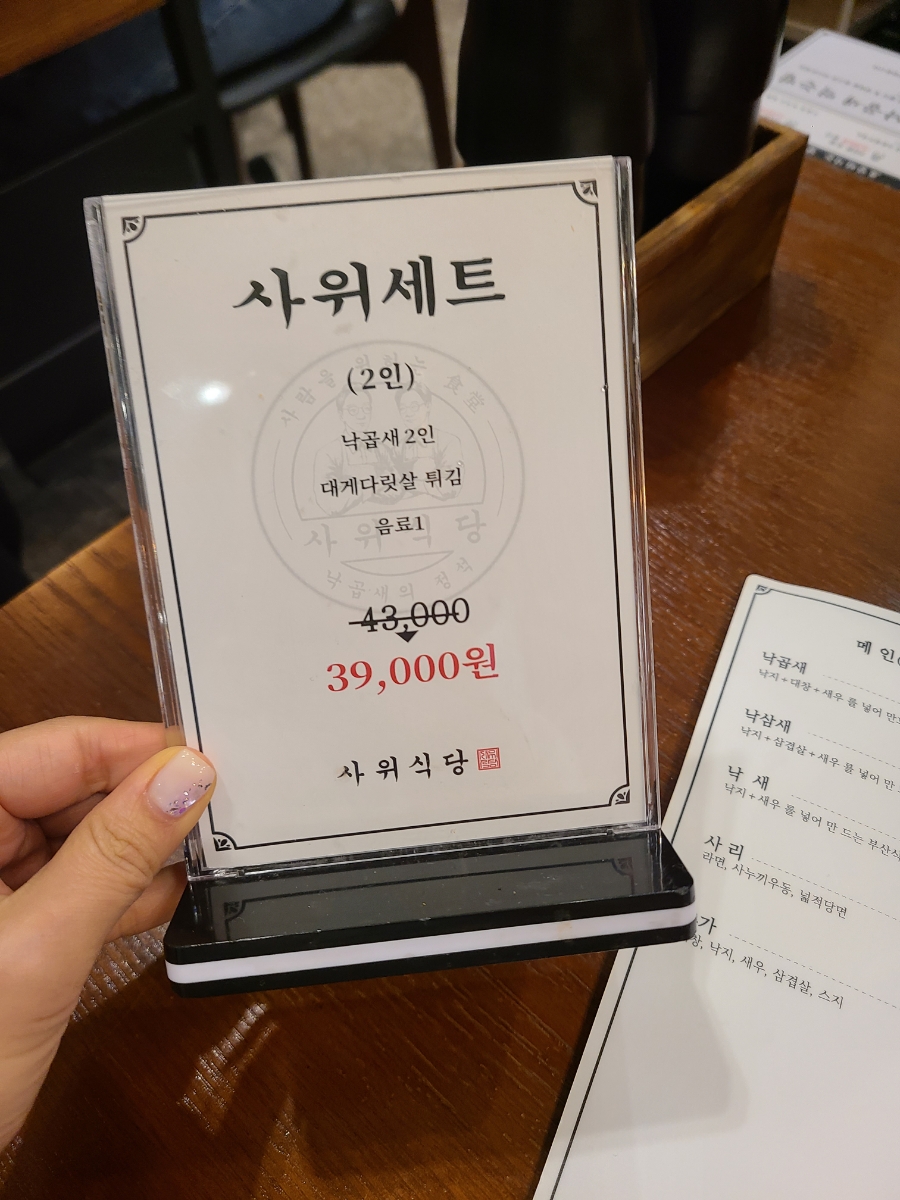 사위세트
(2인)
낙곱새 2인
대게다릿살 튀김
음료1
43,000
39,000원
사위식당
사람을 위하는 食堂
사위식당
낙곱새의 정석
메인
낙곱새
낙지+대창+새우 를 넣어
낙삼새
낙지+삼겹살+새우 를 넣어 만
낙 새
낙지+새우 를 넣어 만 드는 부산식
사리
라면, 사누끼우동, 넓적당면
가
낙지, 새우, 삼겹살, 스지